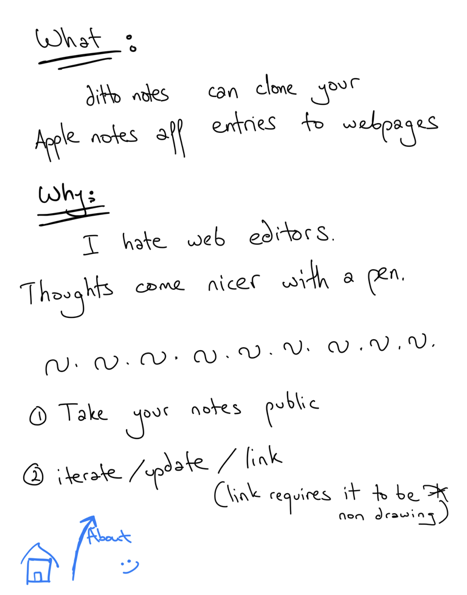 What :
ditto notes can clone your
Apple notes app entries to webpages
Why:
I hate web editors.
Thoughts come nicer with a pen.
① Take your notes public
② iterate/update / link
(link requires it to be
non drawing)
About
:)